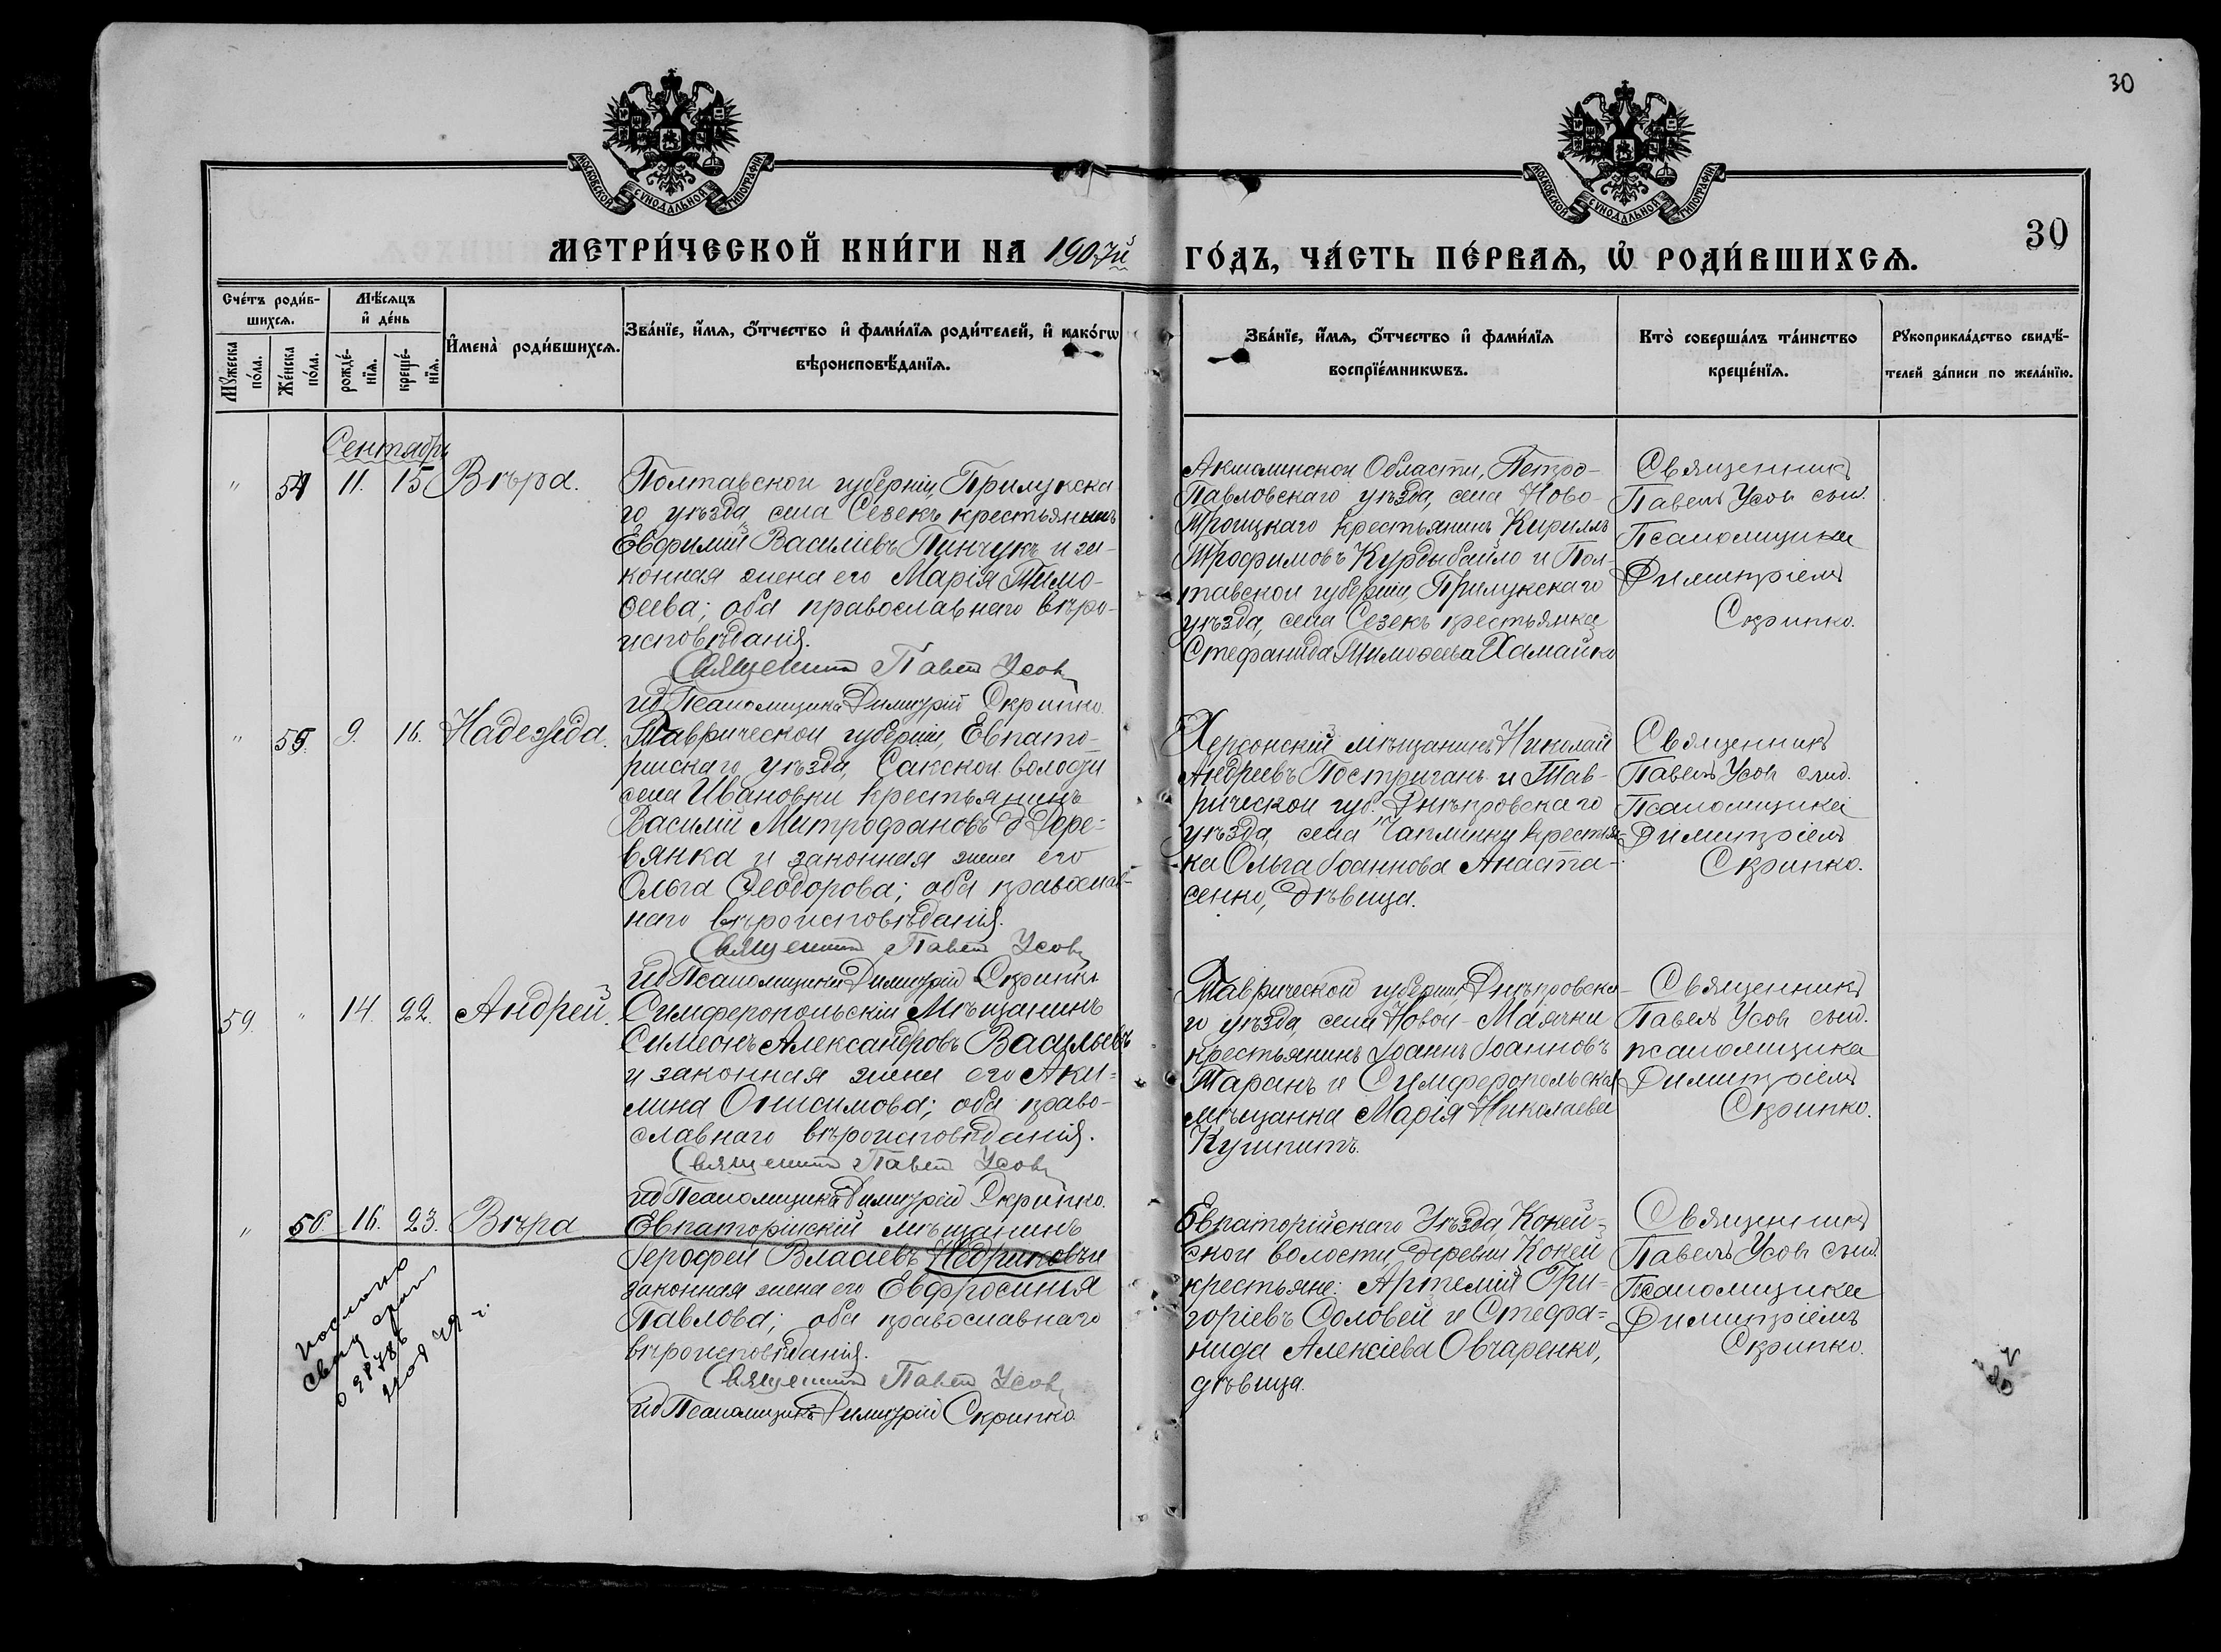 30
МОСКОВСКОЙ СѴНОДАЛЬНОЙ ТИПОГРАФІИ
МОСКОВСКОЙ СѴНОДАЛЬНОЙ ТИПОГРАФІИ
30
МЕТРИ́ЧЕСКОЙ КНИ́ГИ НА 1907й ГО́ДЪ, ЧА́СТЬ ПЕ́РВАѦ, Ѡ҆ РОДИ́ВШИХСѦ.
Сче́тъ роди́в-
шихсѧ.
Мꙋ́жеска по́ла.
Же́нска по́ла.
Мѣ́сѧцъ
и҆ де́нь
рожде́-
нїѧ.
креще́-
нїѧ.
И҆мена̀ роди́вшихсѧ.
Зва́нїе, и҆́мѧ, ѻ҆́тчество и҆ фами́лїѧ роди́телей, и҆ како́гѡ
вѣроисповѣ́данїѧ.
Зва́нїе, и҆́мѧ, ѻ҆́тчество и҆ фами́лїѧ
воспрїе́мникѡвъ.
Кто̀ соверша́лъ та́инство
креще́нїѧ.
Рꙋкоприкла́дство свидѣ́-
телей за́писи по жела́нїю.
Сентябрь
" 54 11. 15 Вѣра.
Полтавской губерніи, Прилукска
го уѣзда, села Сезекъ крестьянинъ
Евфимій Василіевъ Пинчукъ и за-
конная жена его Марія Тимо-
ѳеева; оба православнаго вѣро-
исповѣданія.
Священникъ Павелъ Усовъ
ид Псаломщика Димитрій Скрипко.
Акмолинской Области, Петро-
Павловскаго уѣзда, села Ново-
Троицкаго крестьянинъ Кириллъ
Трофимовъ Курдыбайло и Пол-
тавской губерніи, Прилукскаго
уѣзда, села Сезекъ крестьянка
Стефанида Тимоѳеева Хамайко
Священникъ
Павелъ Усовъ съ ид.
Псаломщика
Димитріемъ
Скрипко.
" 55. 9. 16. Надежда.
Таврической губерніи, Евпато-
рійскаго уѣзда, Сакской волости
села Ивановки крестьянинъ
Василій Митрофановъ Дере-
вянка и законная жена его
Ольга Ѳеодорова; оба православ-
наго вѣроисповѣданія.
Священникъ Павелъ Усовъ
ид Псаломщика Димитрій Скрипко
Херсонскій мѣщанинъ Николай
Андреевъ Постриганъ и Тав-
рической губ. Днѣпровскаго
уѣзда, села Чаплинки крестьян-
ка Ольга Іоаннова Анаста-
сенко, дѣвица.
Священникъ
Павелъ Усовъ съ ид.
Псаломщика
Димитріемъ
Скрипко.
59. " 14. 22. Андрей.
Симферопольскій Мѣщанинъ
Симеонъ Александровъ Васильевъ
и законная жена его Аки-
лина Онисимова; оба право-
славнаго вѣроисповѣданія.
Священникъ Павелъ Усовъ
ид Псаломщика Димитрій Скрипко.
Таврической губерніи, Днѣпровска-
го уѣзда, села Новой-Маячки
крестьянинъ Іоаннъ Іоанновъ
Таранъ и Симферопольская
мѣщанка Марія Николаева
Священникъ
Павелъ Усовъ съ ид.
псаломщика
Димитріемъ
Скрипко.
" 56. 16. 23. Вѣра
Евпаторійскій мѣщанинъ
Іерофей Власіевъ
законная жена его Евфросинія
Павлова; оба православнаго
вѣроисповѣданія.
Священникъ Павелъ Усовъ
ид Псаломщика Димитрій Скрипко
Евпаторійскаго Уѣзда, Кокей-
ской волости, деревни Кокей
крестьяне: Артемій Гри-
горіевъ Соловей и Стефа-
нида Алексіева Овчаренко,
дѣвица.
Священникъ
Павелъ Усовъ съ ид
Псаломщика
Димитріемъ
Скрипко.